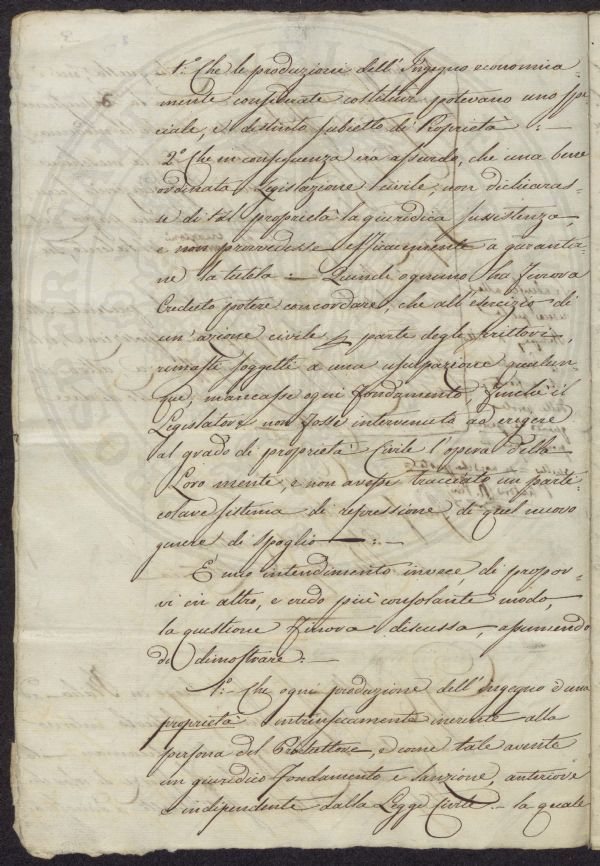 1.º Che le produzioni dell'Ingegno economica
mente considerate costituir potevano uno spe
ciale, e distinto subietto di Proprietà: —
2.º Che in conseguenza era assurdo, che una bene
ordinata Legislazione Civile, non dichiaras=
se di tal proprietà la giuridica sussistenza,
e non provvedesse efficacemente a garantir
ne la tutela: — Quindi ognuno ha finora
Creduto potere concordare, che all'esercizio di
un'azione civile parte degli scrittori,
rimasti soggetti a una usurpazione qualun
que, mancasse ogni fondamento, finchè il
Legislatore non fosse intervenuto ad erigere
al grado di proprietà Civile l'opera della
Loro mente, e non avesse tracciato un parti
colare sistema di repressione di quel nuovo
genere di spoglio —:—
È mio intendimento invece, di propor=
vi in altro, e credo più consolante modo,
la questione finora discussa, assumendo
di dimostrare: —
1.º — Che ogni produzione dell'ingegno è una
proprietà intrinsecamente inerente alla
persona del Produttore, e come tale avente
un giuridico fondamento e sanzione, anteriore
e indipendente dalla Legge Civile — la quale